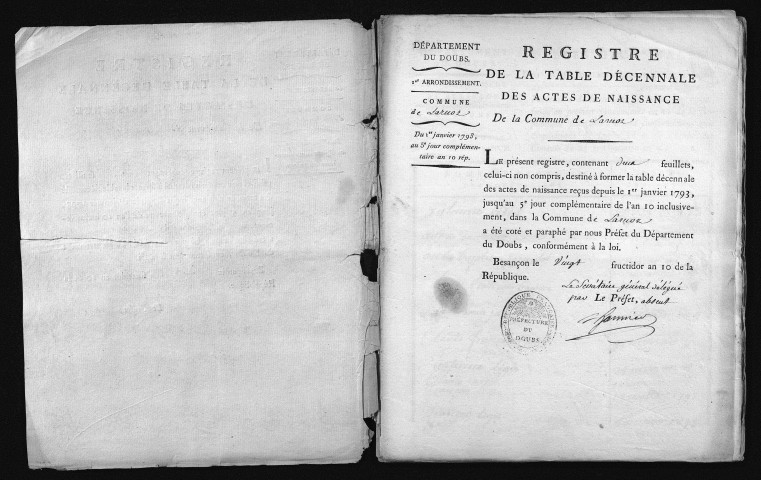 DÉPARTEMENT
DU DOUBS.
1er ARRONDISSEMENT.
COMMUNE
de Larnod
Du 1er janvier 1793,
au 5e jour complémen-
taire an 10 rép.
REGISTRE
DE LA TABLE DÉCENNALE
DES ACTES DE NAISSANCE
De la Commune de Larnod
LE présent registre, contenant deux feuillets,
celui-ci non compris, destiné à former la table décennale
des actes de naissance reçus depuis le 1er janvier 1793,
jusqu'au 5e jour complémentaire de l'an 10 inclusive-
ment, dans la Commune de Larnod
a été coté et paraphé par nous Préfet du Département
du Doubs, conformément à la loi.
Besançon le Vingt fructidor an 10 de la
République.
Le Secrétaire général délégué
par Le Préfet, absent
RÉPUBLIQUE FRANÇAISE
PRÉFECTURE
DU
DOUBS.